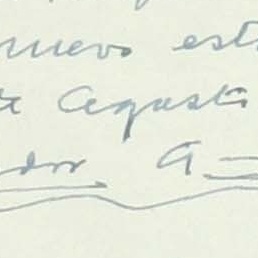 nuevo est
te Agusti
dor A